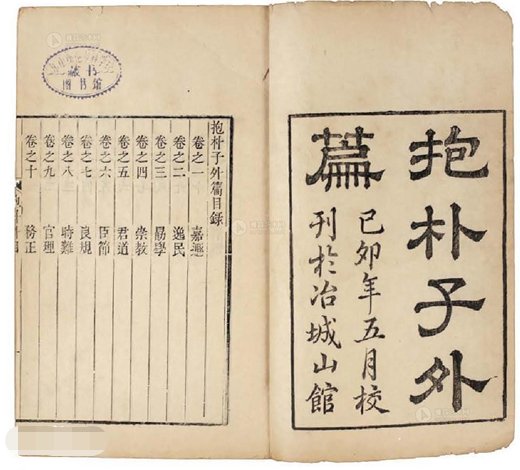 抱朴子外
篇
己卯年五月校
刊於冶城山館
抱朴子外篇目錄
卷之一 嘉遯
卷之二 逸民
卷之三 勗學
卷之四 崇教
卷之五 君道
卷之六 臣節
卷之七 良規
卷之八 時難
卷之九 官理
卷之十 務正
藏书
图书馆